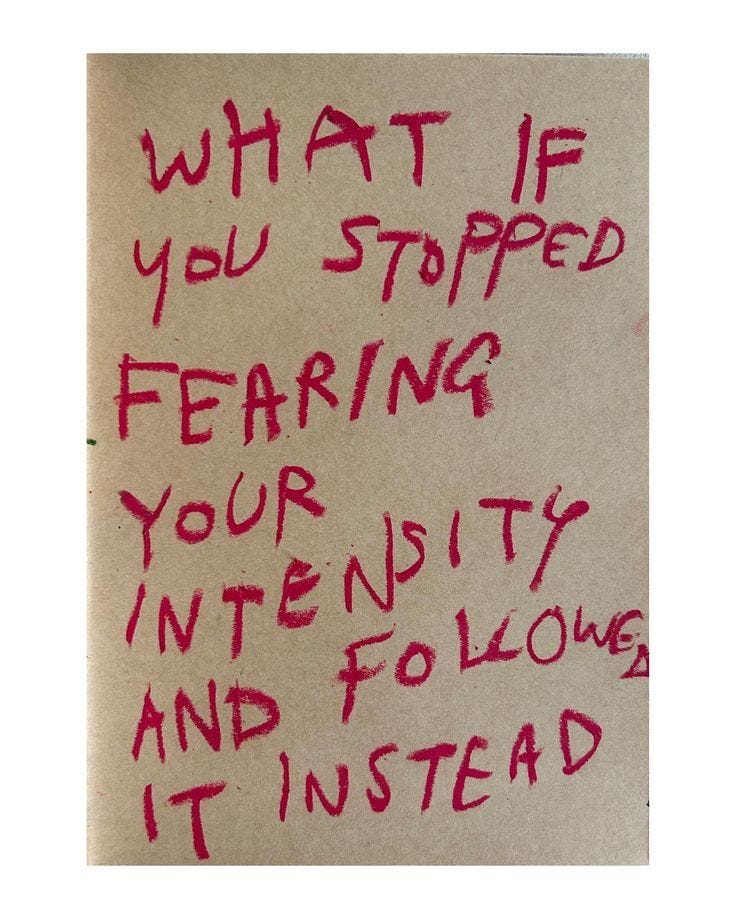 WHAT IF
YOU STOPPED
FEARING
YOUR
INTENSITY
AND FOLLOWED
IT INSTEAD